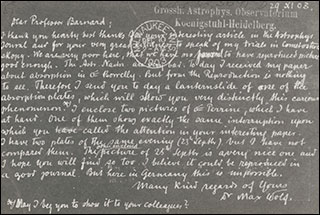 29 XI 08.
Grossh. Astrophys. Observatorium
Koenigstuhl-Heidelberg.
Dear Professor Barnard:
I thank you hearty best thanks for your interesting article in the Astrophys.
Journal and for your very great of my trials in Comet
ology. We are very poor here, that we have no to have reproduced pictures
good enough. The Astr. Nachr. are bad. To day I received my paper
about absorption in c Borelly. But from the Reproduction is nothing
to see. Therefore I send you to day a lanternslide of one of the
absorption plates, which will show you very distinctly this curious
phenomenon. I enclose two pictures of c Borelly, which I have
at hand. One of them shows exactly the same interruption upon
which you have called the attention in your interesting paper.
I have two plates of the same evening (23th Sept.) but I have not
compared them. The picture of 25th Septb. is a very nice one and
I hope you will find so too. I believe it could be reproduced in
a good Journal. But here in Germany this is impossible.
Many kind regards of Yours
Dr Max Wolf.
May I beg you to show it to your colleagues?